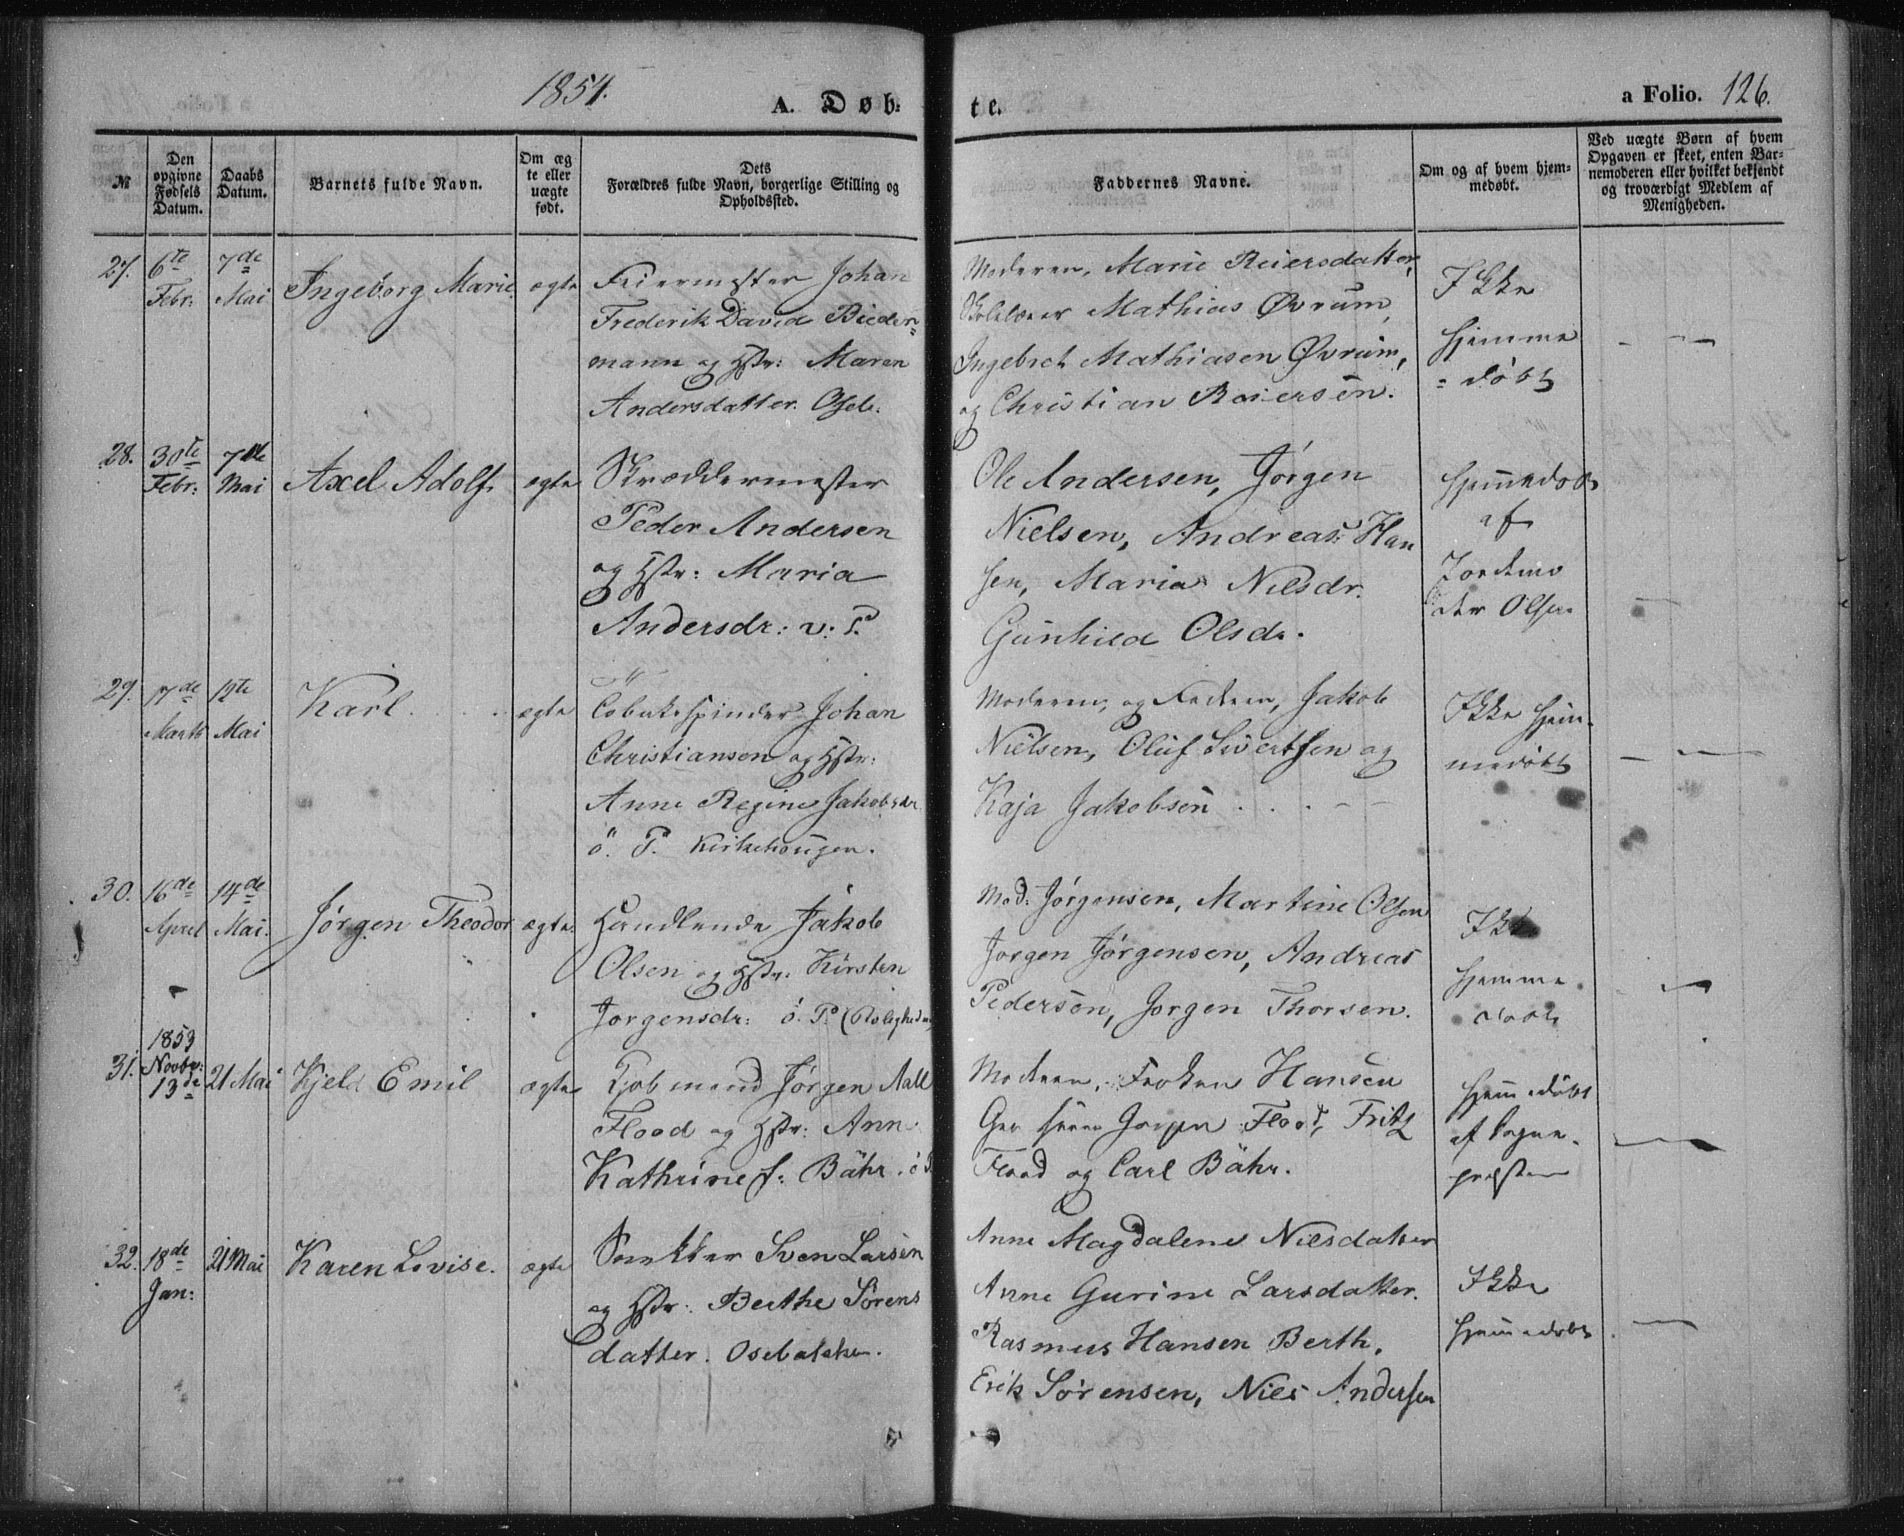 1854.
A. Døb-
te.
a Folio. 126.
№
Den opgivne Fødsels Datum.
Daabs Datum.
Barnets fulde Navn.
Om æg te eller uægte født.
Dets Forældres fulde Navn, borgerlige Stilling og Opholdssted.
Faddernes Navne.
Om og af hvem hjem- medøbt.
Ved uægte Børn af hvem Opgaven er skeet, enten Bar- nemoderen eller hvilket bekjendt og troværdigt Medlem af Menigheden.
27. 6te Febr: 7de Mai Ingeborg Marie. ægte
Feiermester Johan
Frederik David Bieder-
mann og Hstr: Maren
Andersdatter. Oseb:
Moderen, Marie Reiersdatter,
Skolelærer Mathias Øvrum,
Ingebret Mathiasen Øvrum,
og Christian Reiersen.
Ikke
hjemme
= døbt
28. 30te Febr: 7de Mai Axel Adolf. ægte
Skræddermester
Peder Andersen
og Hstr: Maria
Andersdr: v: P.
Ole Andersen, Jörgen
Nielsen, Andreas Han
sen, Maria Nilsdr.
Gunhild Olsdr.
Hjemmedøbt
af
Jordemo
der Olsen
29. 17de Marts 12te Mai Karl. ægte
Tobakspinder Johan
Christiansen og Hstr:
Anne Regine Jakobsdr.
ö. P. Kirkehougen.
Moderen, og Faderen, Jakob
Nielsen, Oluf Sivertsen og
Kaja Jakobsen
Ikke hjem-
medøbt
30. 16de April 14de Mai. Jørgen Theodor ægte.
Handlende Jakob
Olsen og Hstr: Kirsten
Jorgensdr: ö. P. (Roligheden)
Mod: Jørgensen, Martine Olsen
Jorgen Jørgensen, Andreas
Pedersen, Jorgen Thorsen.
Ikke
hjemme
døbt
31. 1853 Novbr: 13de 21 Mai Kjeld Emil ægte
Kjøbmand Jørgen Aall
Flood og Hstr: Ann
Kathrine f: Bähr. ö P
Moderen, Frøken Hansen
Flood, Fritz
Flood og Carl Bähr.
Hjemmedøbt
af Sogne-
præsten
32. 18de Jan: 21 Mai Karen Lovise. ægte
Snekker Sven Larsen
og Hstr: Berthe Sörens
datter. Osebakken.
Anne Magdalene Nilsdatter
Anne Gurine Larsdatter.
Rasmus Hansen Berth,
Erik Sørensen, Niels Andersen
Ikke
hjemmedøbt